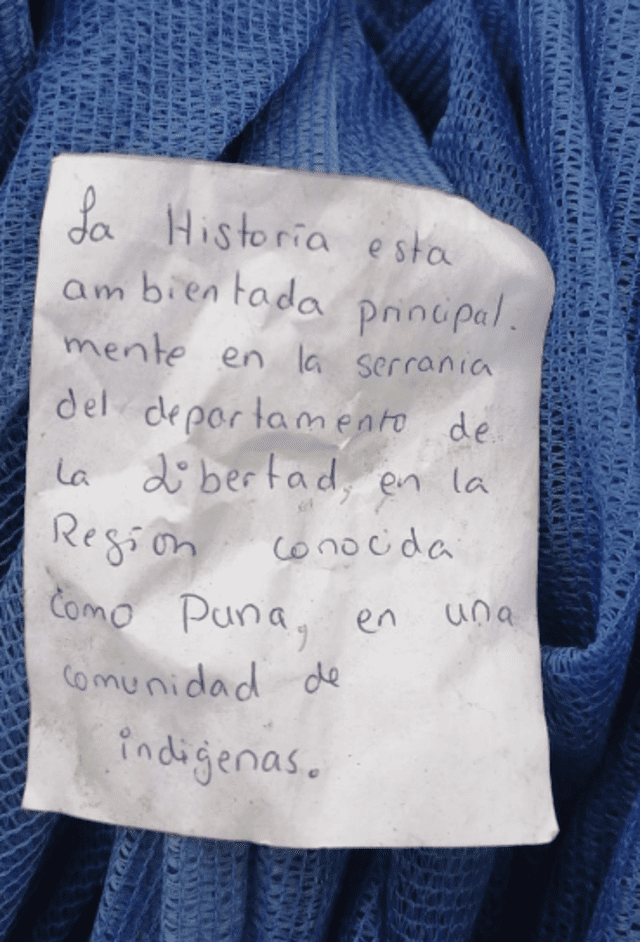 La Historia esta
ambientada principal.
mente en la serrania
del departamento de
La Libertad, en la
Región conocida
como Puna, en una
comunidad de
indigenas.